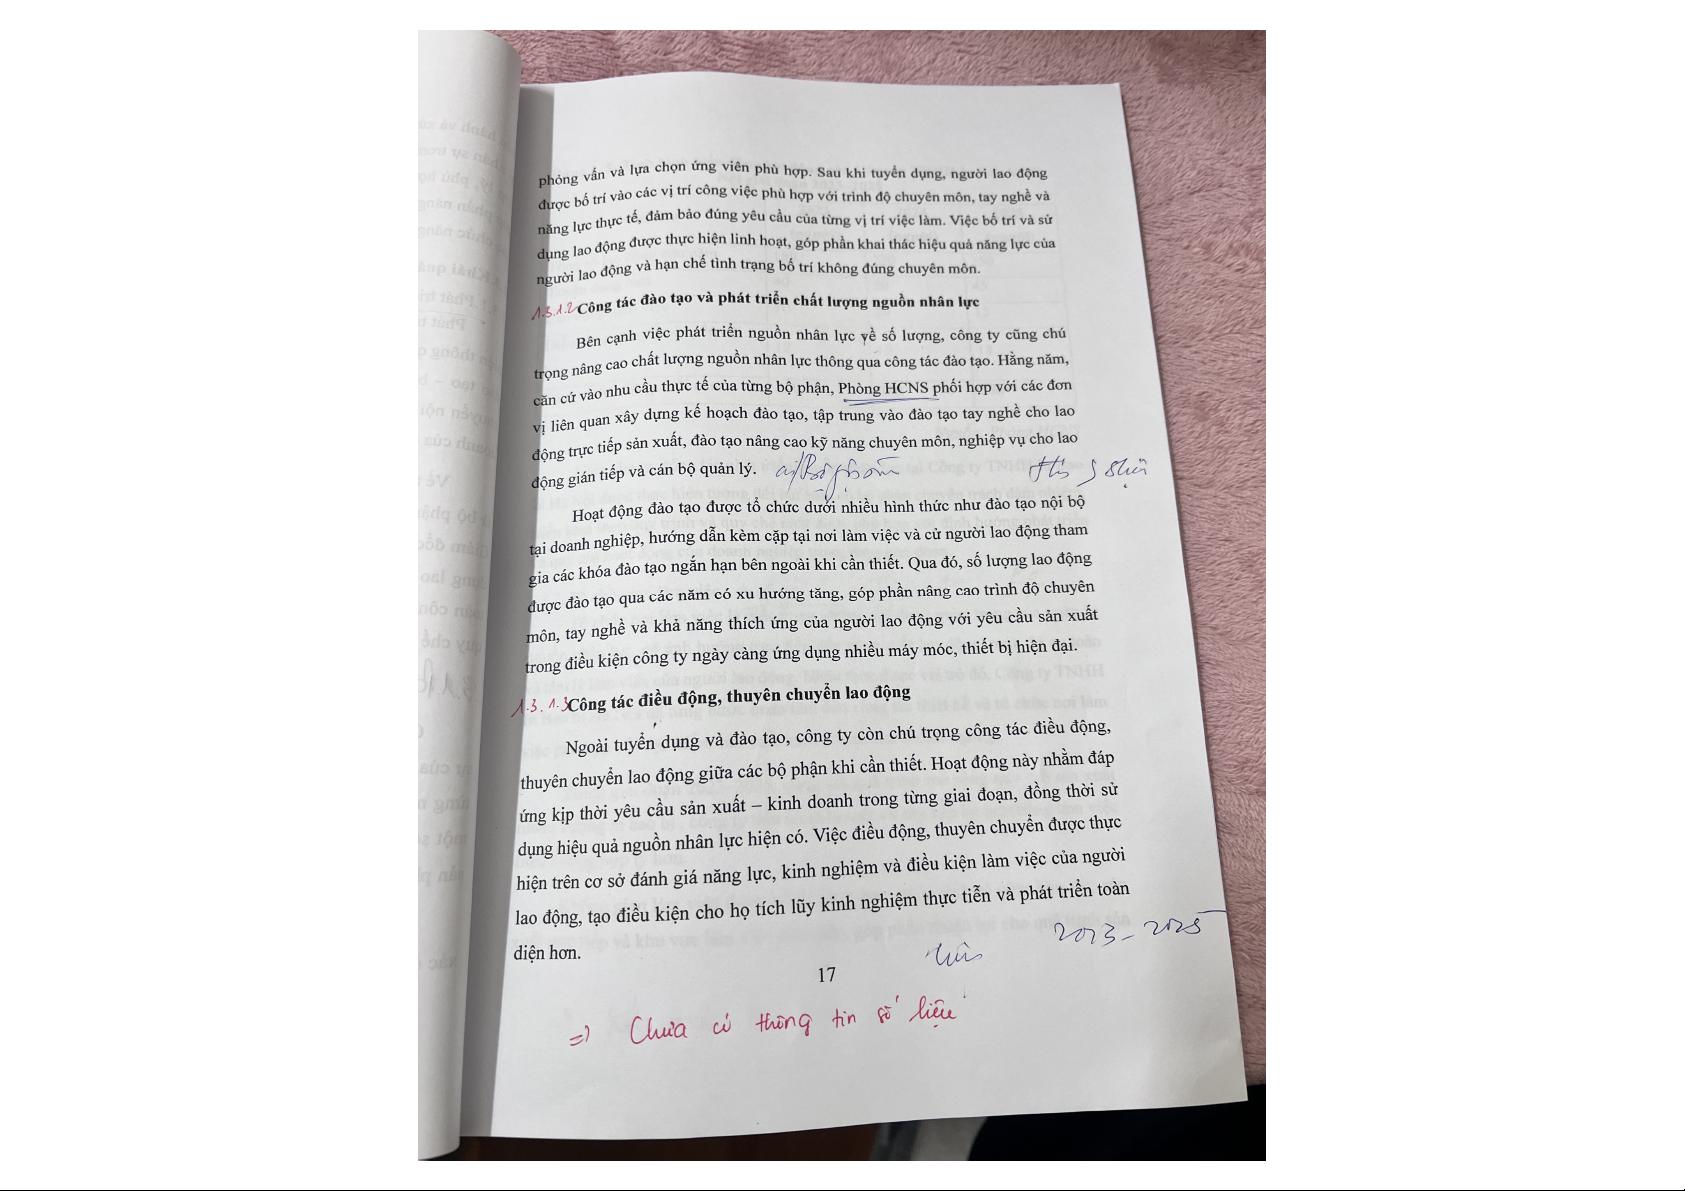 phỏng vấn và lựa chọn ứng viên phù hợp. Sau khi tuyển dụng, người lao động
được bố trí vào các vị trí công việc phù hợp với trình độ chuyên môn, tay nghề và
năng lực thực tế, đảm bảo đúng yêu cầu của từng vị trí việc làm. Việc bố trí và sử
dụng lao động được thực hiện linh hoạt, góp phần khai thác hiệu quả năng lực của
người lao động và hạn chế tình trạng bố trí không đúng chuyên môn.
1.3.1.2 Công tác đào tạo và phát triển chất lượng nguồn nhân lực
Bên cạnh việc phát triển nguồn nhân lực về số lượng, công ty cũng chú
trọng nâng cao chất lượng nguồn nhân lực thông qua công tác đào tạo. Hằng năm,
căn cứ vào nhu cầu thực tế của từng bộ phận, Phòng HCNS phối hợp với các đơn
vị liên quan xây dựng kế hoạch đào tạo, tập trung vào đào tạo tay nghề cho lao
động trực tiếp sản xuất, đào tạo nâng cao kỹ năng chuyên môn, nghiệp vụ cho lao
động gián tiếp và cán bộ quản lý.
Hoạt động đào tạo được tổ chức dưới nhiều hình thức như đào tạo nội bộ
tại doanh nghiệp, hướng dẫn kèm cặp tại nơi làm việc và cử người lao động tham
gia các khóa đào tạo ngắn hạn bên ngoài khi cần thiết. Qua đó, số lượng lao động
được đào tạo qua các năm có xu hướng tăng, góp phần nâng cao trình độ chuyên
môn, tay nghề và khả năng thích ứng của người lao động với yêu cầu sản xuất
trong điều kiện công ty ngày càng ứng dụng nhiều máy móc, thiết bị hiện đại.
1.3.1.3 Công tác điều động, thuyên chuyển lao động
Ngoài tuyển dụng và đào tạo, công ty còn chú trọng công tác điều động,
thuyên chuyển lao động giữa các bộ phận khi cần thiết. Hoạt động này nhằm đáp
ứng kịp thời yêu cầu sản xuất – kinh doanh trong từng giai đoạn, đồng thời sử
dụng hiệu quả nguồn nhân lực hiện có. Việc điều động, thuyên chuyển được thực
hiện trên cơ sở đánh giá năng lực, kinh nghiệm và điều kiện làm việc của người
lao động, tạo điều kiện cho họ tích lũy kinh nghiệm thực tiễn và phát triển toàn
diện hơn.
2023-2025
17
=> Chưa có thông tin số liệu